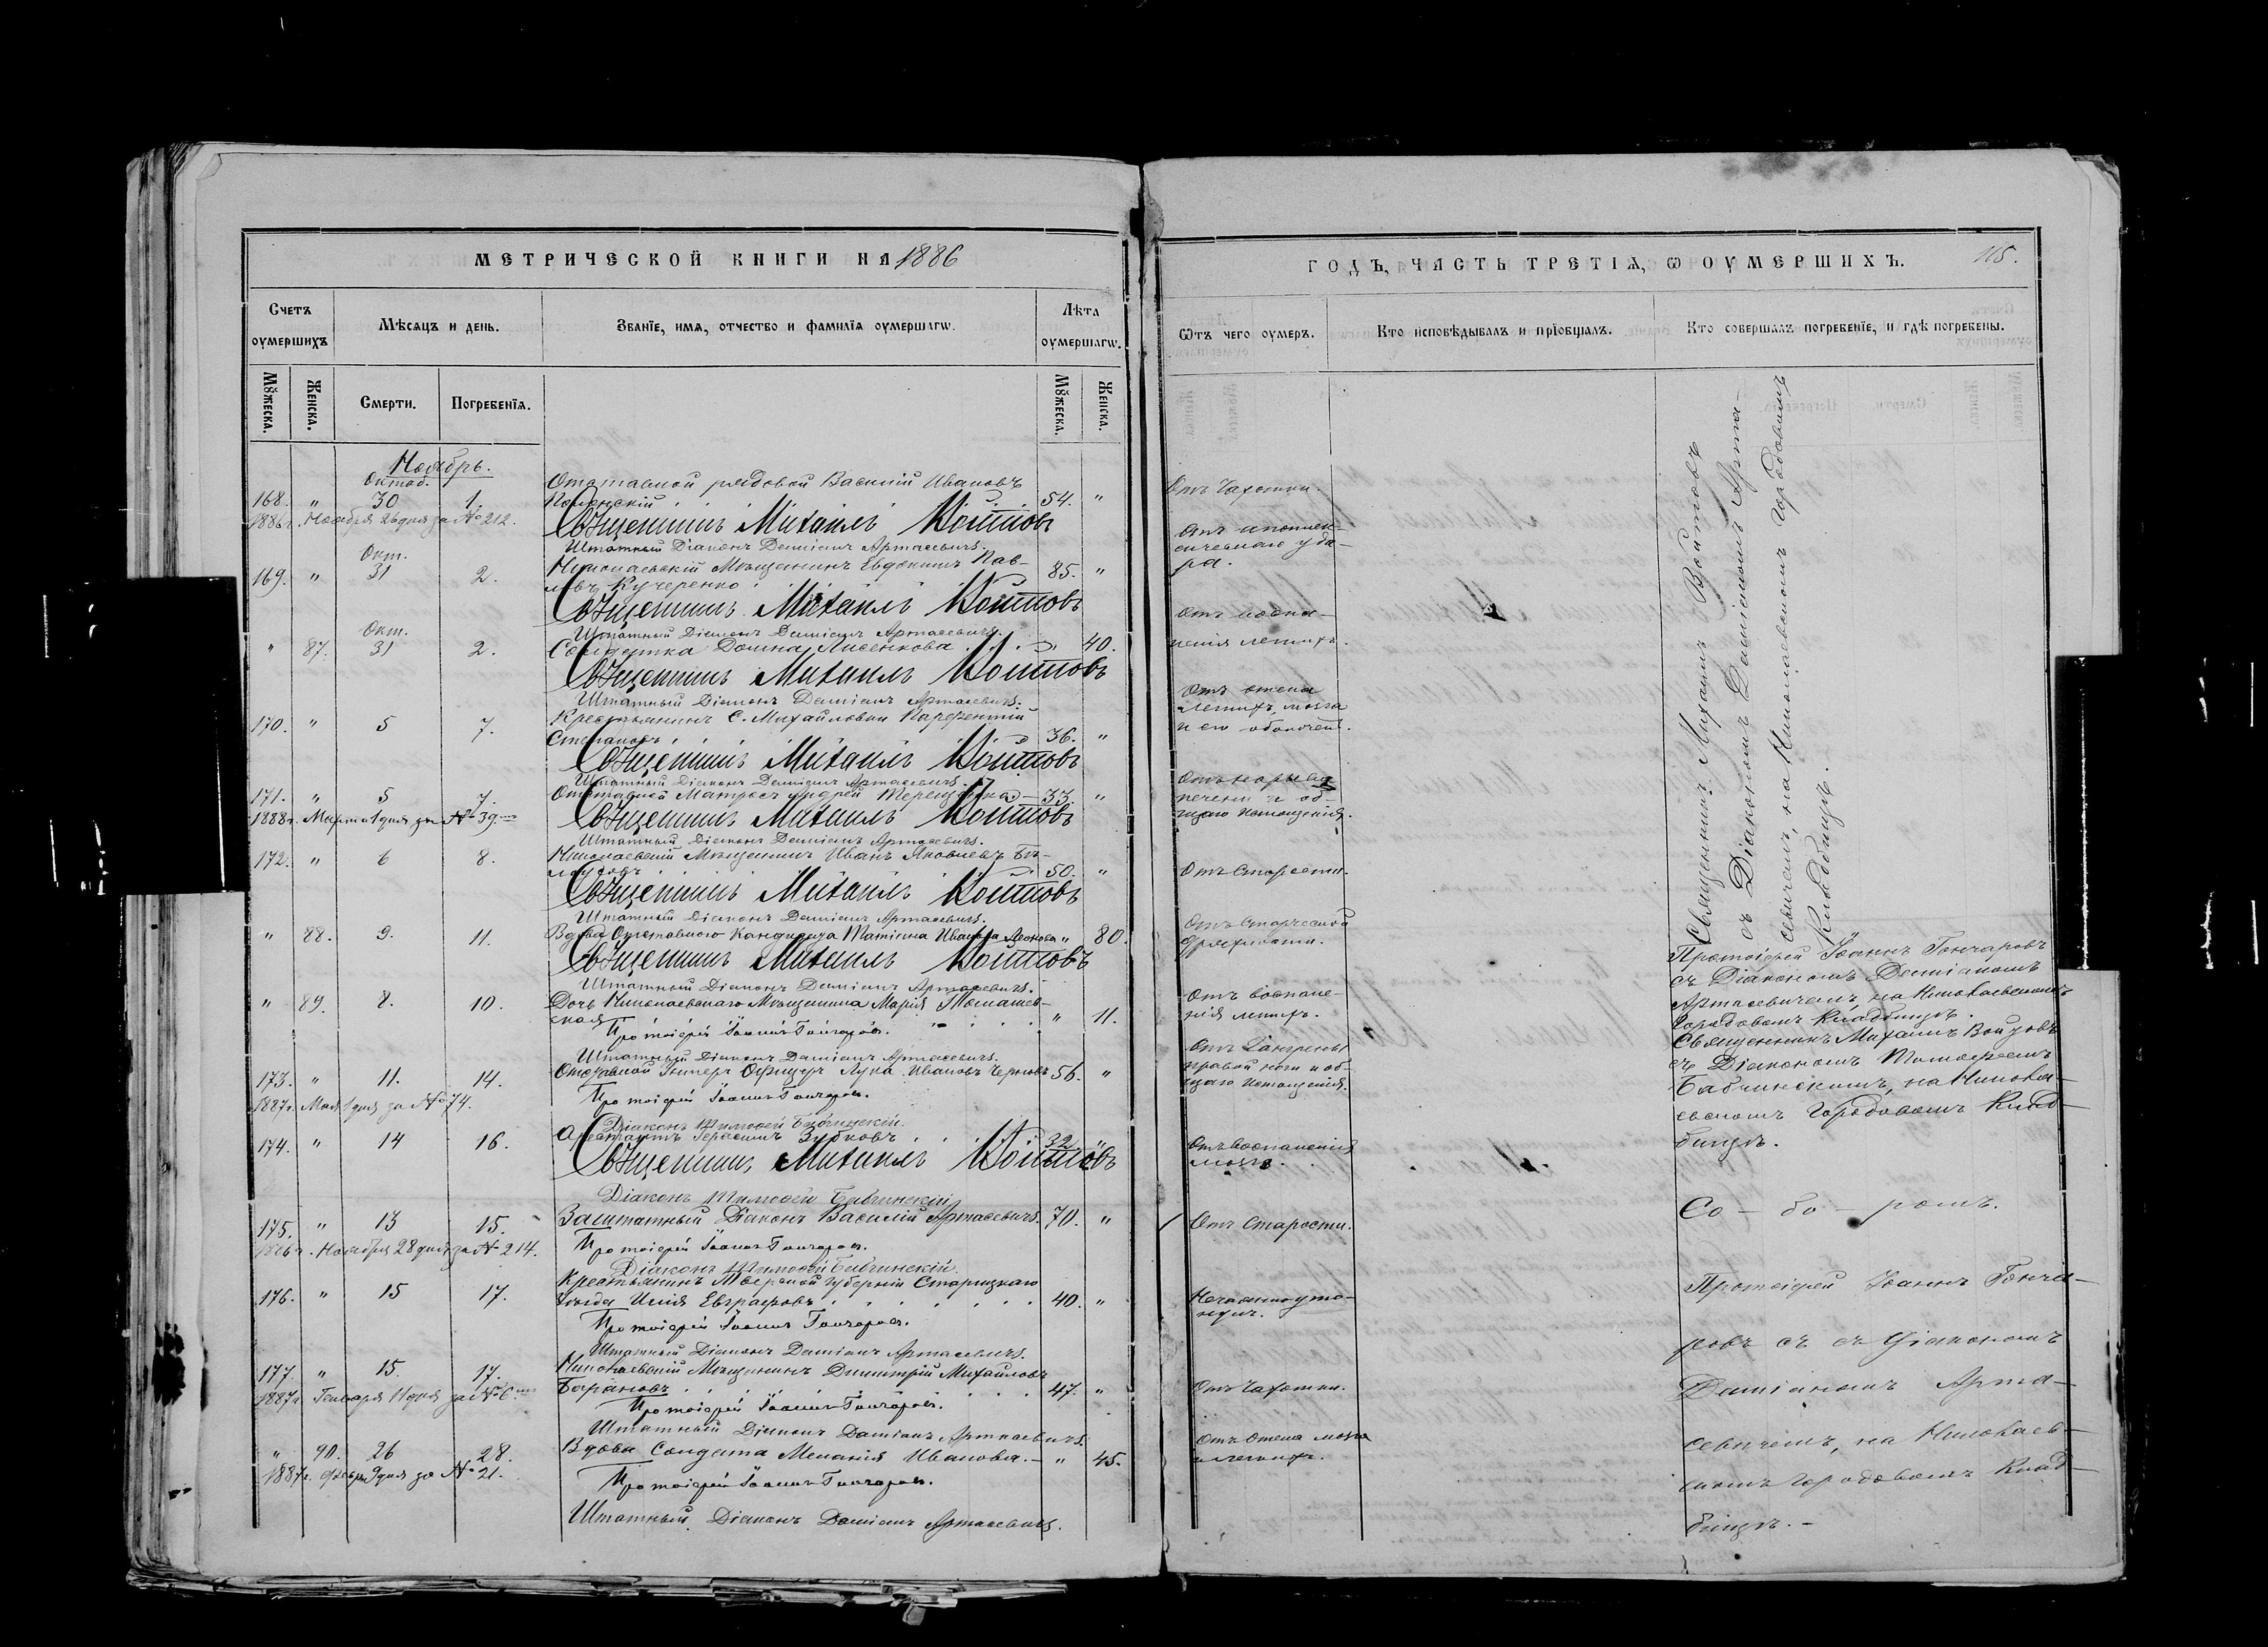 МЕТРИЧЕСКОЙ КНИГИ НА 1886
Счетъ оумершихъ
Мѣсяцъ и день.
Званіе, имя, отчество и фамиліа оумершагѡ.
Лѣта оумершагѡ.
Мꙋжеска.
Женска.
Смерти.
Погребеніѧ.
Мꙋжеска.
Женска.
Ноябрь.
Октоб.
Отставной рядовой Василій Ивановъ
168. " 30 1. 54. "
1886г. Ноября 26 дня за № 212.
Священникъ Михаилъ Войтовъ
Штатный Діаконъ Даміанъ Артасевичъ.
Окт.
Николаевскій Мѣщанинъ Евдокимъ Пав-
169. " 31 2. ловъ Кучеренко 85. "
Священникъ Михаилъ Войтовъ
Штатный Діаконъ Даміанъ Артасевичъ.
Окт.
" 87. 31 2. Солдатка Домна Лисенкова " 40.
Священникъ Михаилъ Войтовъ
Штатный Діаконъ Даміанъ Артасевичъ.
Крестьянинъ С. Михайловки Парфентій
170. " 5 7. Степановъ 36. "
Священникъ Михаилъ Войтовъ
Штатный Діаконъ Даміанъ Артасевичъ.
171. " 5 7. Отставной Матросъ Андрей Терещенко 33. "
1888г. Марта 1 дня за № 39.
Священникъ Михаилъ Войтовъ
Штатный Діаконъ Даміанъ Артасевичъ.
172. " 6 8. Николаевскій Мѣщанинъ Иванъ Яковлевъ Бѣ-
лоусовъ 50. "
Священникъ Михаилъ Войтовъ
Штатный Діаконъ Даміанъ Артасевичъ.
" 88. 9. 11. Вдова Отставного Кандидата Татіана Иванова " 80.
Священникъ Михаилъ Войтовъ
Штатный Діаконъ Даміанъ Артасевичъ.
" 89. 8. 10. Дочь Николаевскаго Мѣщанина Марія Томашев-
ская " 11.
Протоіерей Іоаннъ Гончаровъ.
Штатный Діаконъ Даміанъ Артасевичъ.
173. " 11. 14. Отставной Унтеръ Офицеръ Лука Ивановъ Черновъ 56. "
1887г. Мая 1 дня за № 74.
Протоіерей Іоаннъ Гончаровъ.
Діаконъ Тимофей Бабчинскій.
174. " 14 16. Арестантъ Герасимъ Зубковъ 32. "
Священникъ Михаилъ Войтовъ
Діаконъ Тимофей Бабчинскій
175. " 13 15. Заштатный Діаконъ Василій Артасевичъ. 70. "
1886г. Ноября 28 дня за № 214.
Протоіерей Іоаннъ Гончаровъ.
Діаконъ Тимофей Бабчинскій.
Крестьянинъ Тверской губерніи Старицкаго
176. " 15 17. Уѣзда Илія Евграфовъ 40. "
Протоіерей Іоаннъ Гончаровъ.
Штатный Діаконъ Даміанъ Артасевичъ.
177. " 15. 17. Николаевскій Мѣщанинъ Димитрій Михайловъ
1887г. Генваря 11 дня за № 6.
Баграновъ 47. "
Протоіерей Іоаннъ Гончаровъ.
Штатный Діаконъ Даміанъ Артасевичъ.
" 90. 26 28. Вдова Солдата Меланія Иванова. " 45.
1887г. Февр. 9 дня за № 21.
Протоіерей Іоаннъ Гончаровъ.
Штатный Діаконъ Даміанъ Артасевичъ.
ГОДЪ, ЧАСТЬ ТРЕТІѦ, Ѡ ОУМЕРШИХЪ.
115.
Ѿтъ чего оумеръ.
Кто исповѣдывалъ и пріобщалъ.
Кто совершалъ погребеніе, и гдѣ погребены.
Отъ Чахотки.
Отъ апоплек-
сическаго уда-
ра.
Отъ воспа-
ленія легкихъ.
Отъ отека
легкихъ, мозга
и его оболочекъ.
Отъ нарыва
печени и об-
щаго истощенія.
Отъ Старости.
Отъ Старческой
дряхлости.
Отъ воспале-
нія легкихъ.
Отъ Гангрены
правой ноги и об-
щаго истощенія.
Отъ воспаленія
мозга.
Отъ Старости.
Нечаянно уто-
нулъ.
Отъ Чахотки.
Отъ Отека мозга
и легкихъ.
Священникъ Михаилъ Войтовъ
съ Діакономъ Даміаномъ Арта-
севичемъ, на Николаевскомъ Городовомъ
Кладбищѣ.
Протоіерей Іоаннъ Гончаровъ
съ Діакономъ Даміаномъ
Артасевичемъ, на Николаевскомъ
Городовомъ Кладбищѣ.
Священникъ Михаилъ Войтовъ
съ Діакономъ Тимофеемъ
Бабчинскимъ, на Никола-
евскомъ Городовомъ Клад-
бищѣ.
Со - бо - ромъ.
Протоіерей Іоаннъ Гонча-
ровъ съ съ Діакономъ
Даміаномъ Арта-
севичемъ, на Николаев-
скомъ Городовомъ Клад-
бищѣ. -